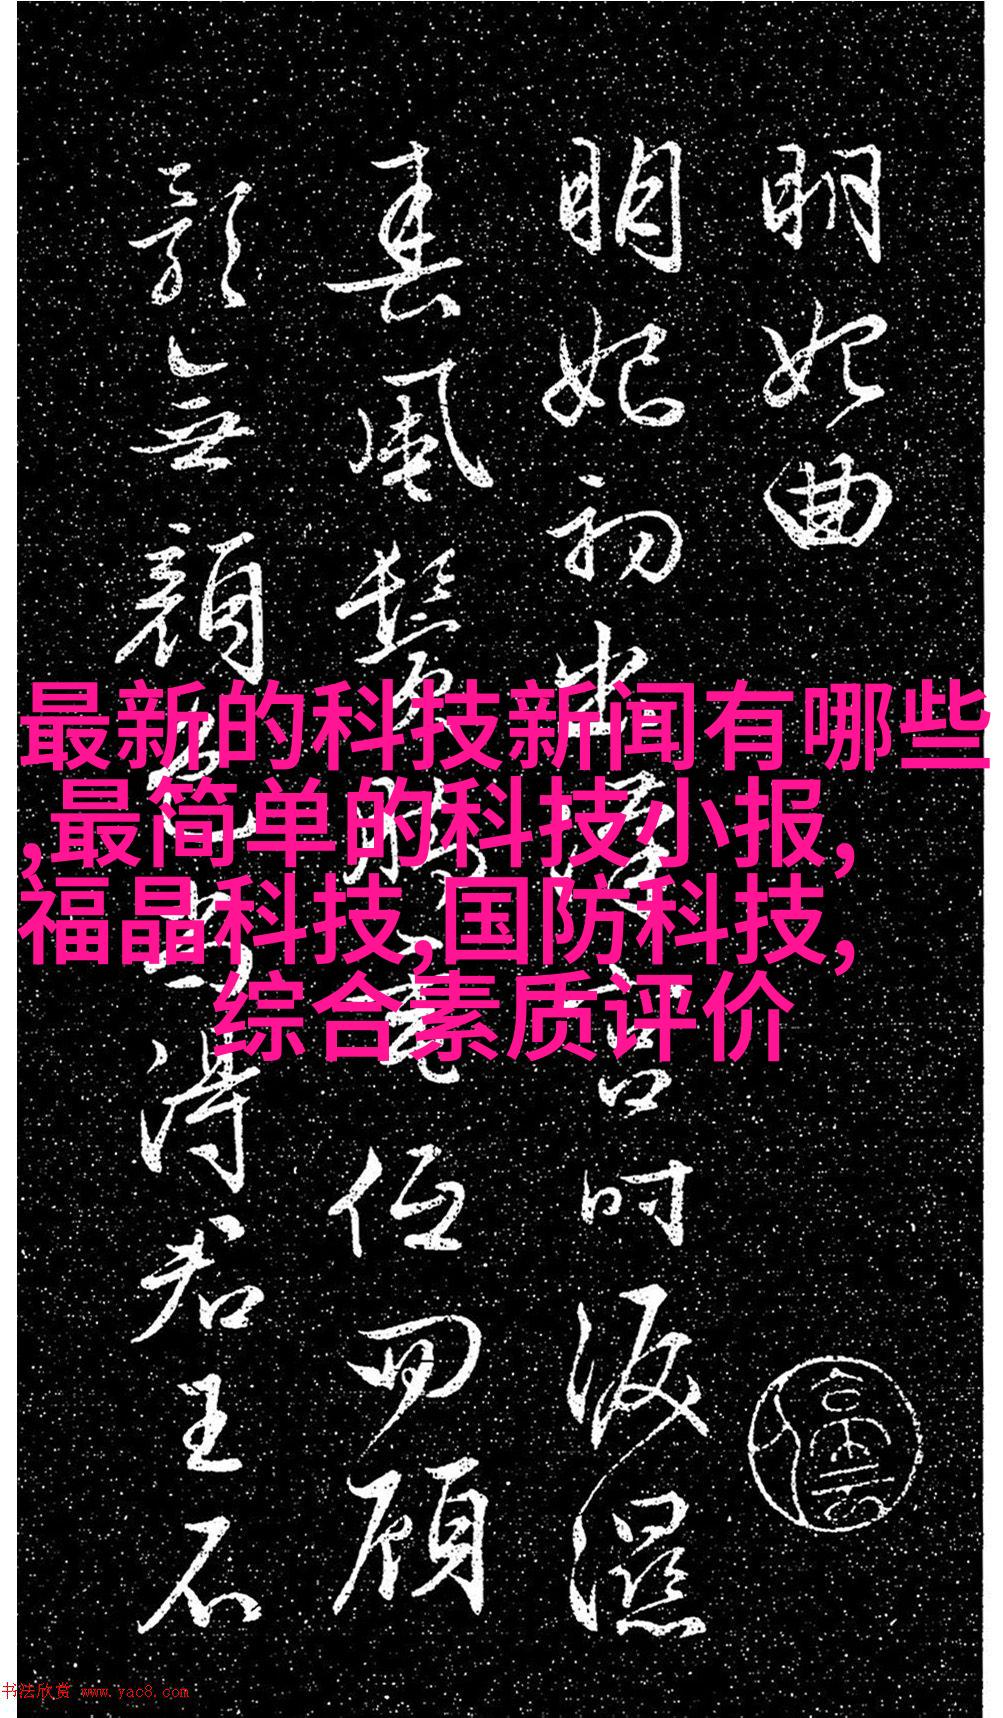 明妃曲
明妃初出宮時淚濕
春風鬢腳垂低回顧
影無顏色得君王不
最新的科技新闻有哪些
,最简单的科技小报,
福晶科技,国防科技,
综合素质评价
书法欣赏 www.yac8.com